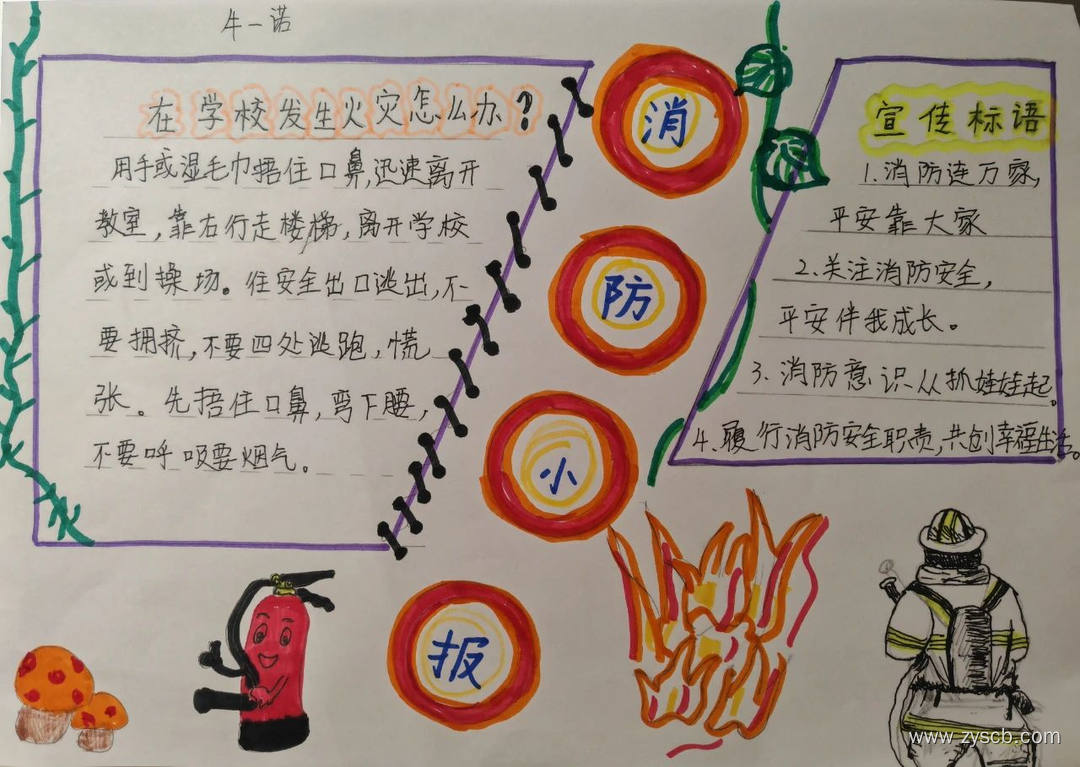 牛一诺
在学校发生火灾怎么办?
用手或湿毛巾捂住口鼻,迅速离开
教室,靠右行走楼梯,离开学校
或到操场。往安全出口逃出,不
要拥挤,不要四处逃跑,慌
张。先捂住口鼻,弯下腰,
不要呼吸要烟气。
消
防
小
报
宣传标语
1.消防连万家,
平安靠大家
2.关注消防安全,
平安伴我成长。
3.消防意识从抓娃娃起。
4.履行消防安全职责,共创幸福生活。
www.zyscb.com